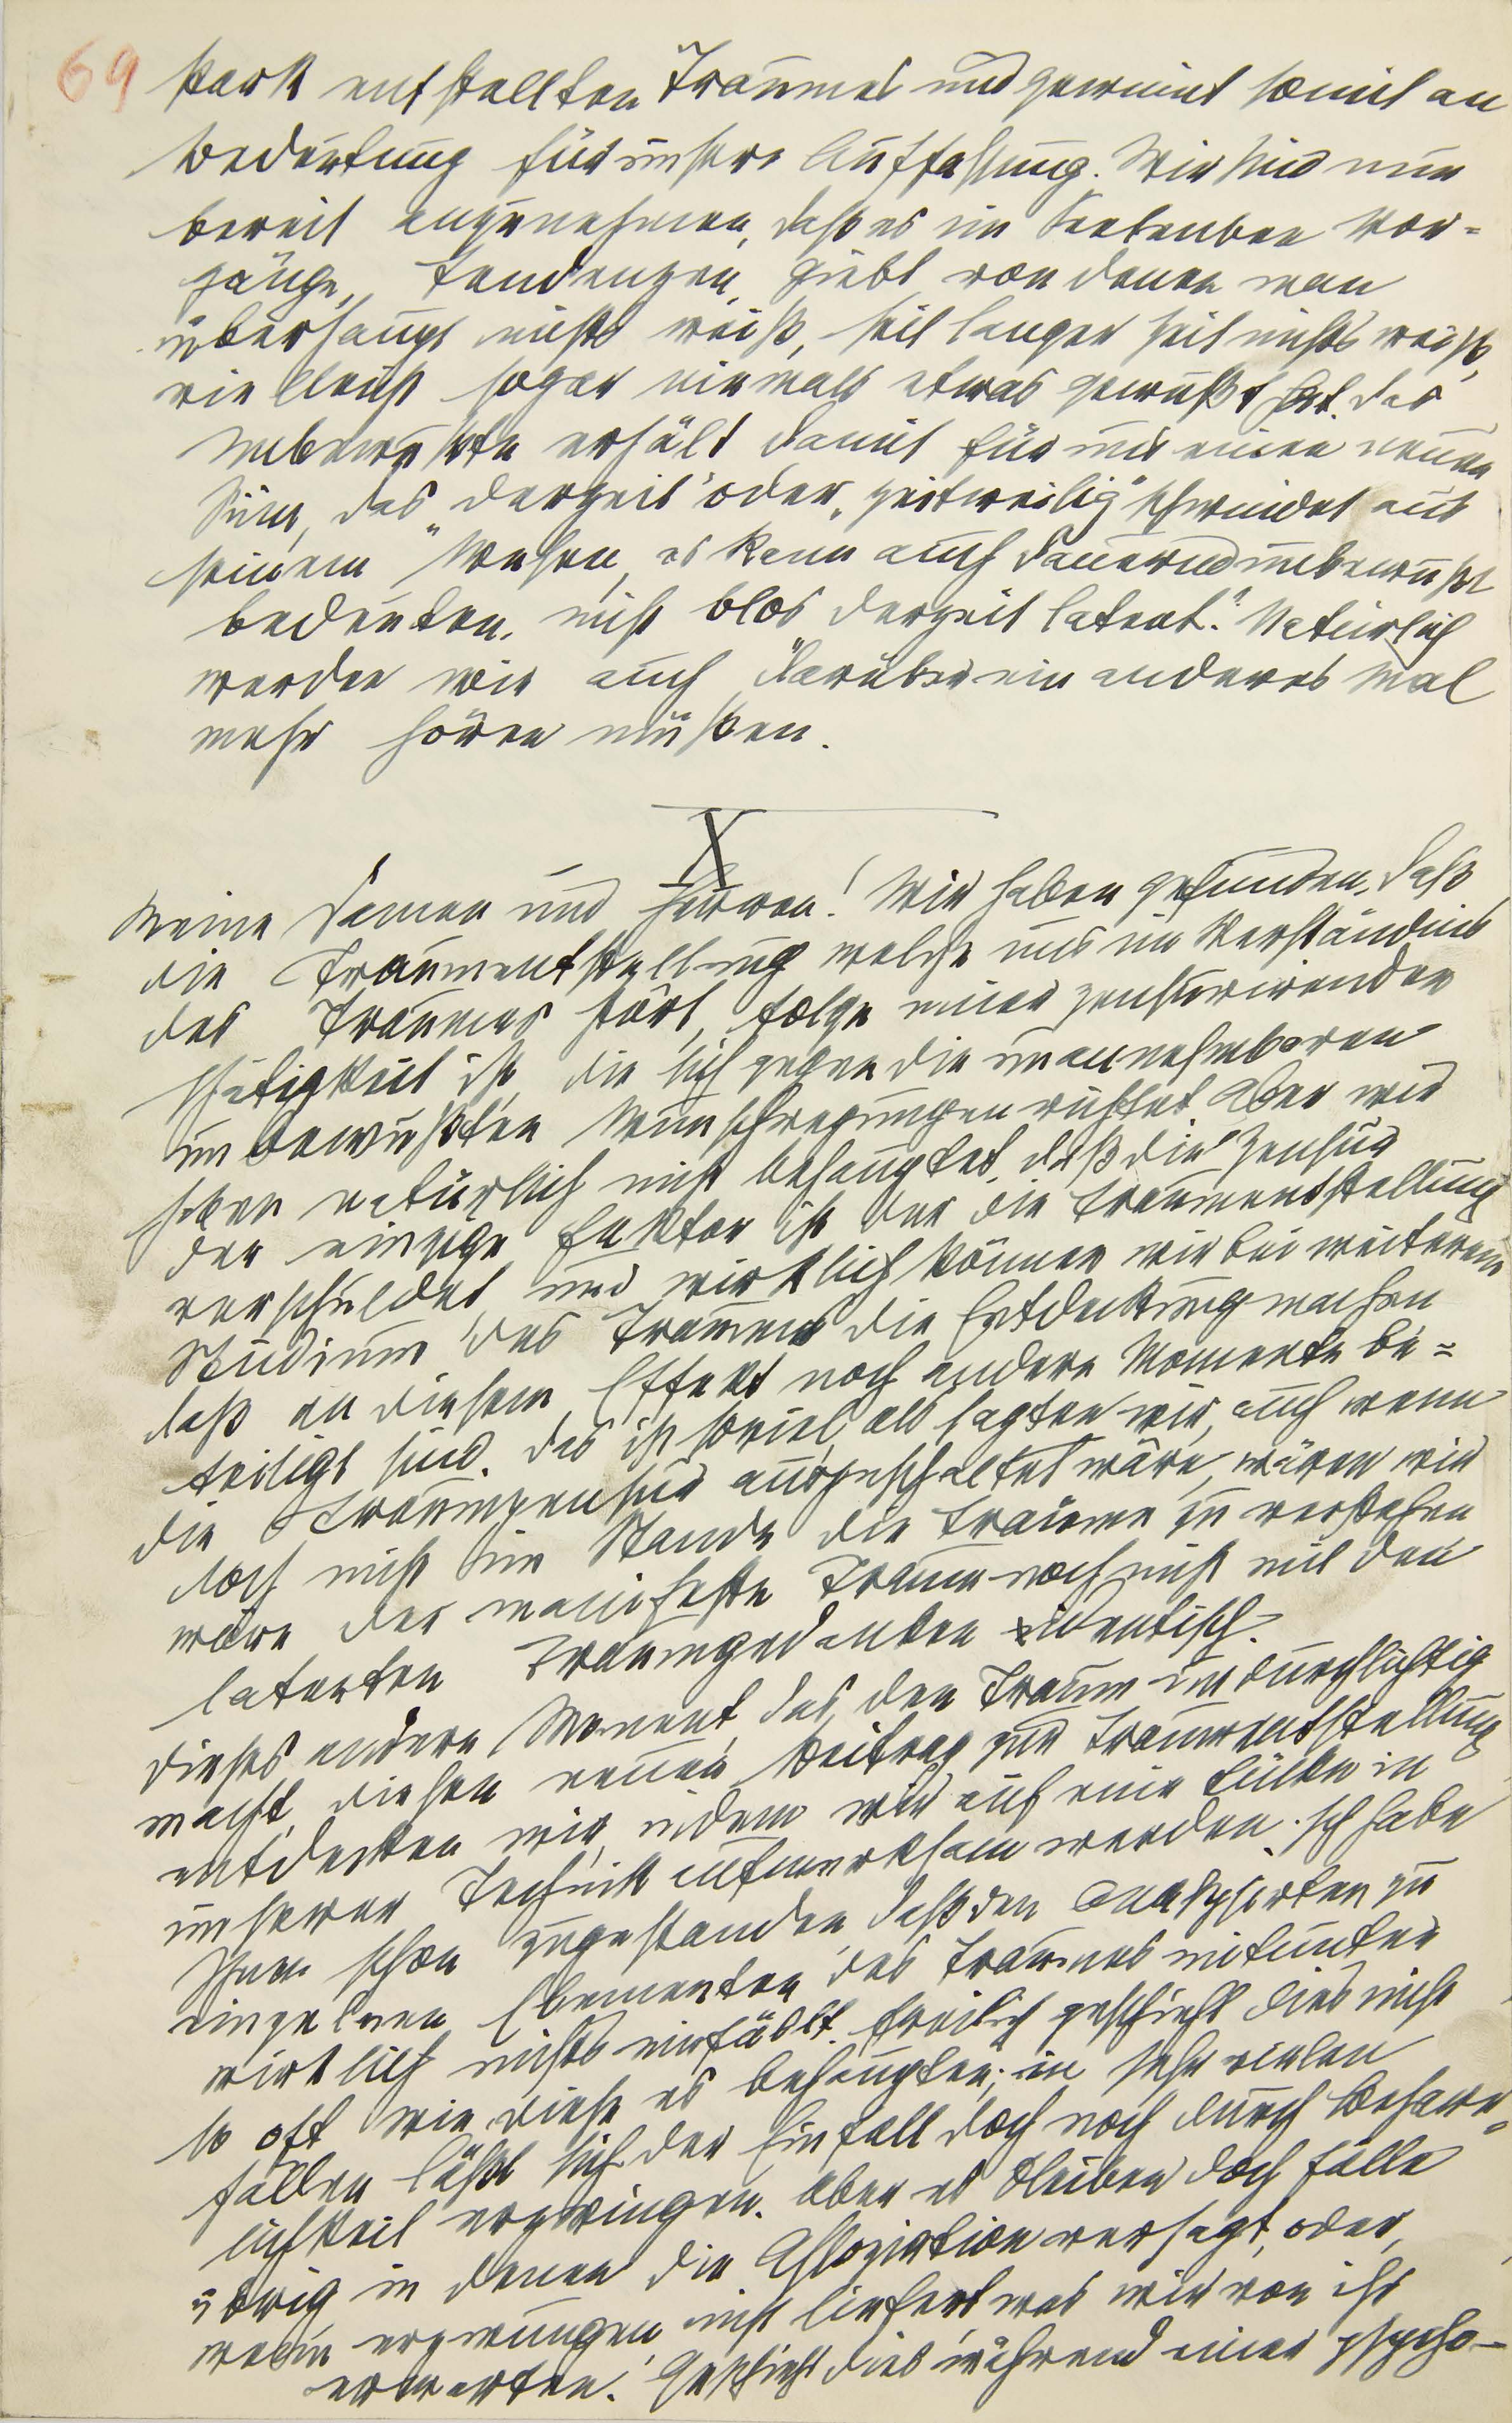 69
stark entstellten Traumes und gewinnt somit an
Bedeutung für unsere Auffassung. Wir sind nun
bereit anzunehmen, daß es im Seelenben Vor-
gänge, Tendenzen, giebt von denen man
überhaupt nichts weiß, seit langer Zeit nichts weiß,
vielleicht sogar niemals etwas gewußt hat. Das
Unbewußte erhält damit für uns einen neuen
Sinn, das „derzeit" oder „zeitweilig" schwindet aus
seinem Wesen, es kann auch dauernd unbewußt
bedeuten, nicht blos „derzeit latent". Natürlich
werden wir auch darüber ein anderes Mal
mehr hören müßen.
X
Meine Damen und Herren! Wir haben gefunden, daß
die Traumentstellung welche uns im Verständnis
des Traumes stört, Folge einer zensurirenden
Thätigkeit ist, die sich gegen die unannehmbaren
unbewußten Wunschregungen richtet. Aber wir
haben natürlich nicht behauptet, daß die Zensur
der einzige Faktor ist der die Traumentstellung
verschuldet, und wirklich können wir bei weiterem
Studium des Traumes die Entdeckung machen
daß an diesem Effekt noch andere Momente be-
teiligt sind. Das ist soviel, als sagten wir, auch wenn
die Traumzensur ausgeschaltet wäre, wären wir
doch nicht im Stande die Träume zu verstehen
wäre der manifeste Traum noch nicht mit den
latenten Traumgedanken identisch.
Dieses andere Moment, das den Traum undurchsichtig
macht, diesen neuen Beitrag zur Traumentstellung
entdecken wir, indem wir auf eine Lücke in
unserer Technik aufmerksam werden. Ich habe
Ihnen schon zugestanden daß den Analysirten zu
einzelnen Elementen des Traumes mitunter
wirklich nichts einfällt. Freilich geschieht dies nicht
so oft wie diese es behaupten; in sehr vielen
Fällen läßt sich der Einfall doch noch durch Beharr-
lichkeit erzwingen. Aber es bleiben doch Fälle
übrig in denen die Assoziation versagt, oder,
wenn erzwungen, nicht liefert was wir von ihr
erwarten. Geschieht dies während einer psycho-